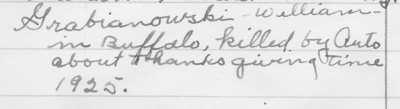 Grabianowski - William -
in Buffalo, killed by Auto
about thanksgiving time
1925.